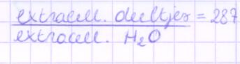 extracell. deeltjes = 287
extracell. H₂O